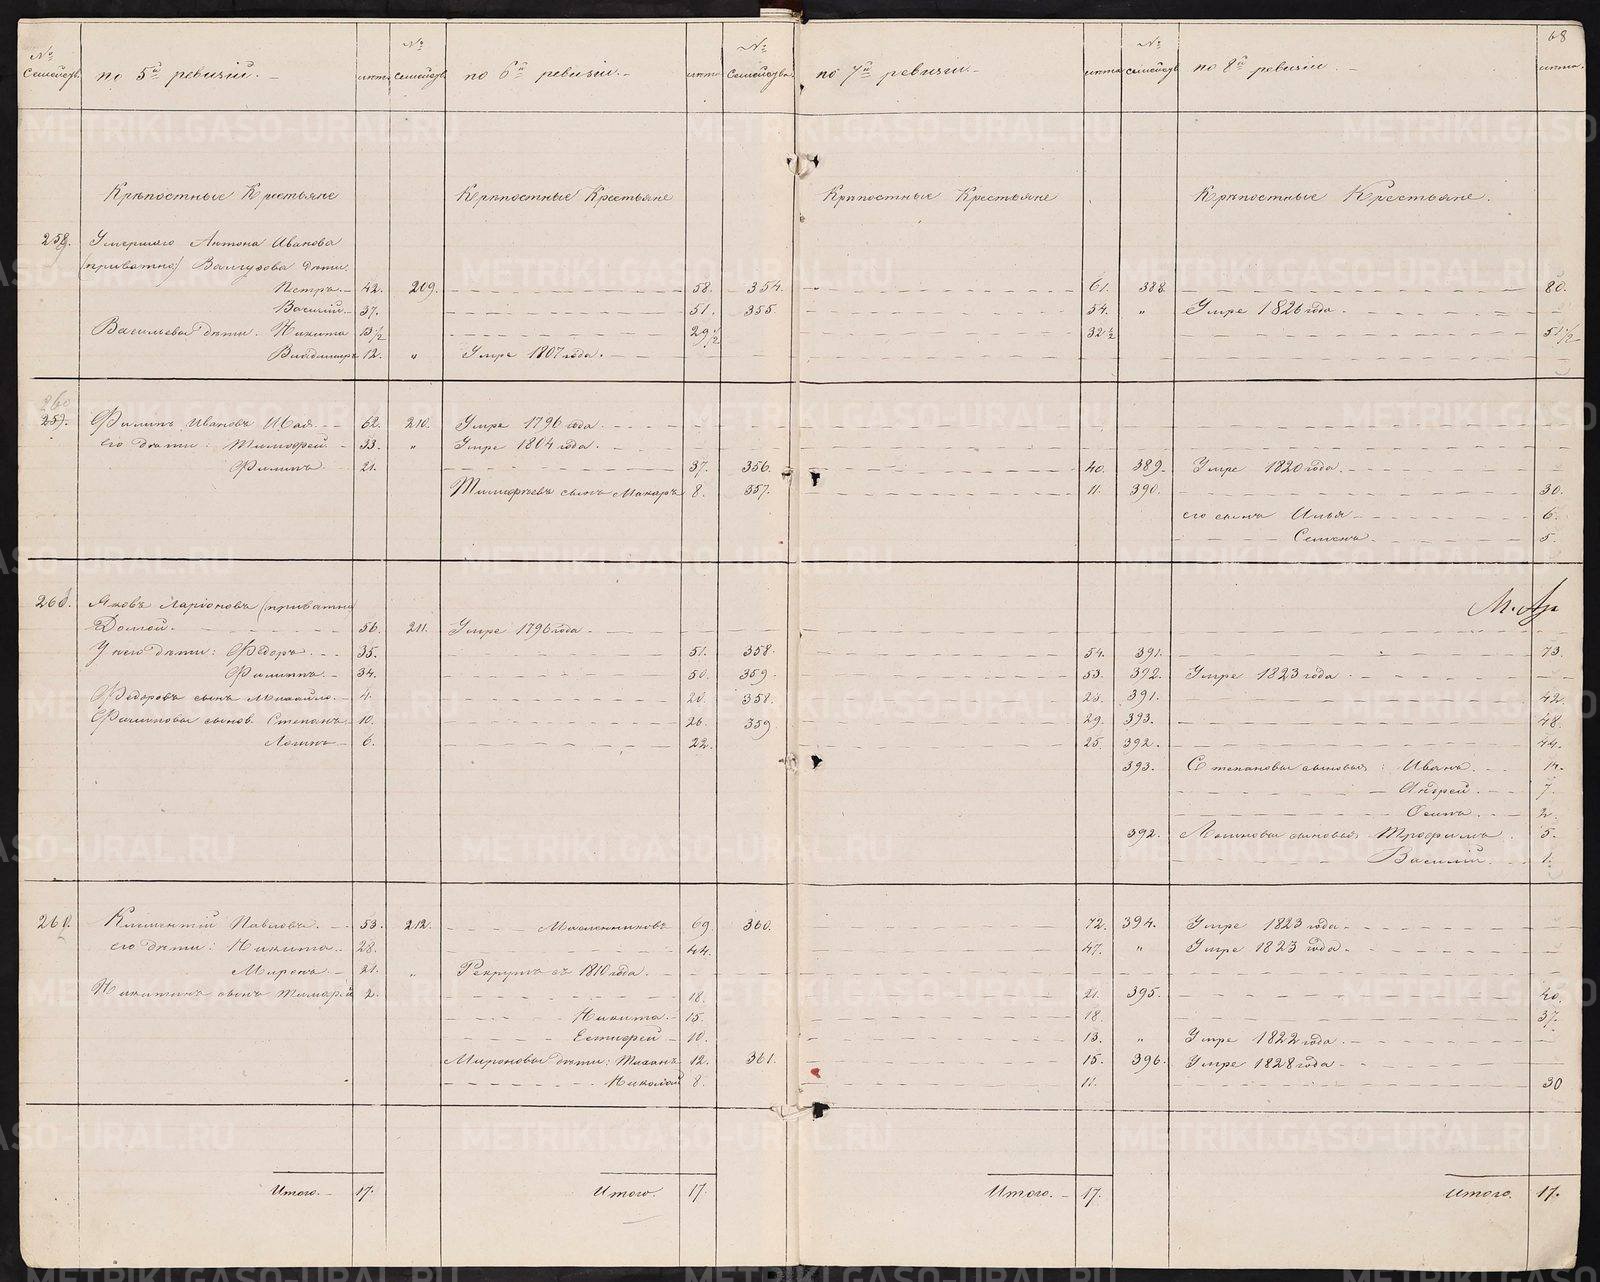 68
№ Семействъ по 5й ревизіи. лѣта № Семействъ по 6й ревизіи. лѣта № Семействъ по 7й ревизіи лѣта № семействъ по 8й ревизіи. лѣта.
Крѣпостные Крестьяне Крѣпостные Крестьяне Крѣпостные Крестьяне Крѣпостные Крестьяне.
Умершаго Антона Иванова
(приватно) дѣти.
Петръ 42. 209. 58. 354. 61. 388. 80.
Василій 37. 51. 355. 54. " Умре 1826 года
Васильевы дѣти: Никита 13½ 29½ 32½ 51½
Владимиръ 12. " Умре 1807 года.
260
259. Филипъ Ивановъ 62. 210. Умре 1796 года.
его дѣти: Тимофей 33. " Умре 1804 года.
Филипъ 21. 37. 356. 40. 389. Умре 1820 года.
Тимофѣевъ сынъ Макаръ 8. 357. 11. 390. 30.
его сынъ Илья 6.
Семенъ 5.
Яковъ Ларіоновъ (приватно
56. 211. Умре 1796 года.
У него дѣти: Федоръ 35. 51. 358. 54. 391. 73.
Филипъ 34. 50. 359. 53. 392. Умре 1823 года.
Федоровъ сынъ Михайло 4. 20. 358. 23. 391. 42.
Филиповы сынов. Степанъ 10. 26. 359 29. 393. 48.
Логинъ 6. 22. 25. 392. 44.
393. Степановы сыновья: Иванъ
Андрей 7.
Осипъ 2.
392. Логиновы сыновья Трофимъ 5.
Василій 1.
Клементій Павловъ. 53. 212. Масленниковъ 69. 360. 72. 394. Умре 1823 года.
его дѣти: Никита 28. 44. 47. " Умре 1823 года.
Миронъ 21. " Рекрутъ съ 1810 года.
Никитинъ сынъ Тимофей 2. 18. 21. 395. 40.
Никита 15. 18. 37.
Естифей 10. 13. " Умре 1822 года.
Мироновы дѣти: 12. 361. 15. 396. Умре 1828 года
Николай 8. 11. 30
Итого. 17. Итого. 17. Итого. 17. Итого. 17.
METRIKI.GASO-URAL.RU